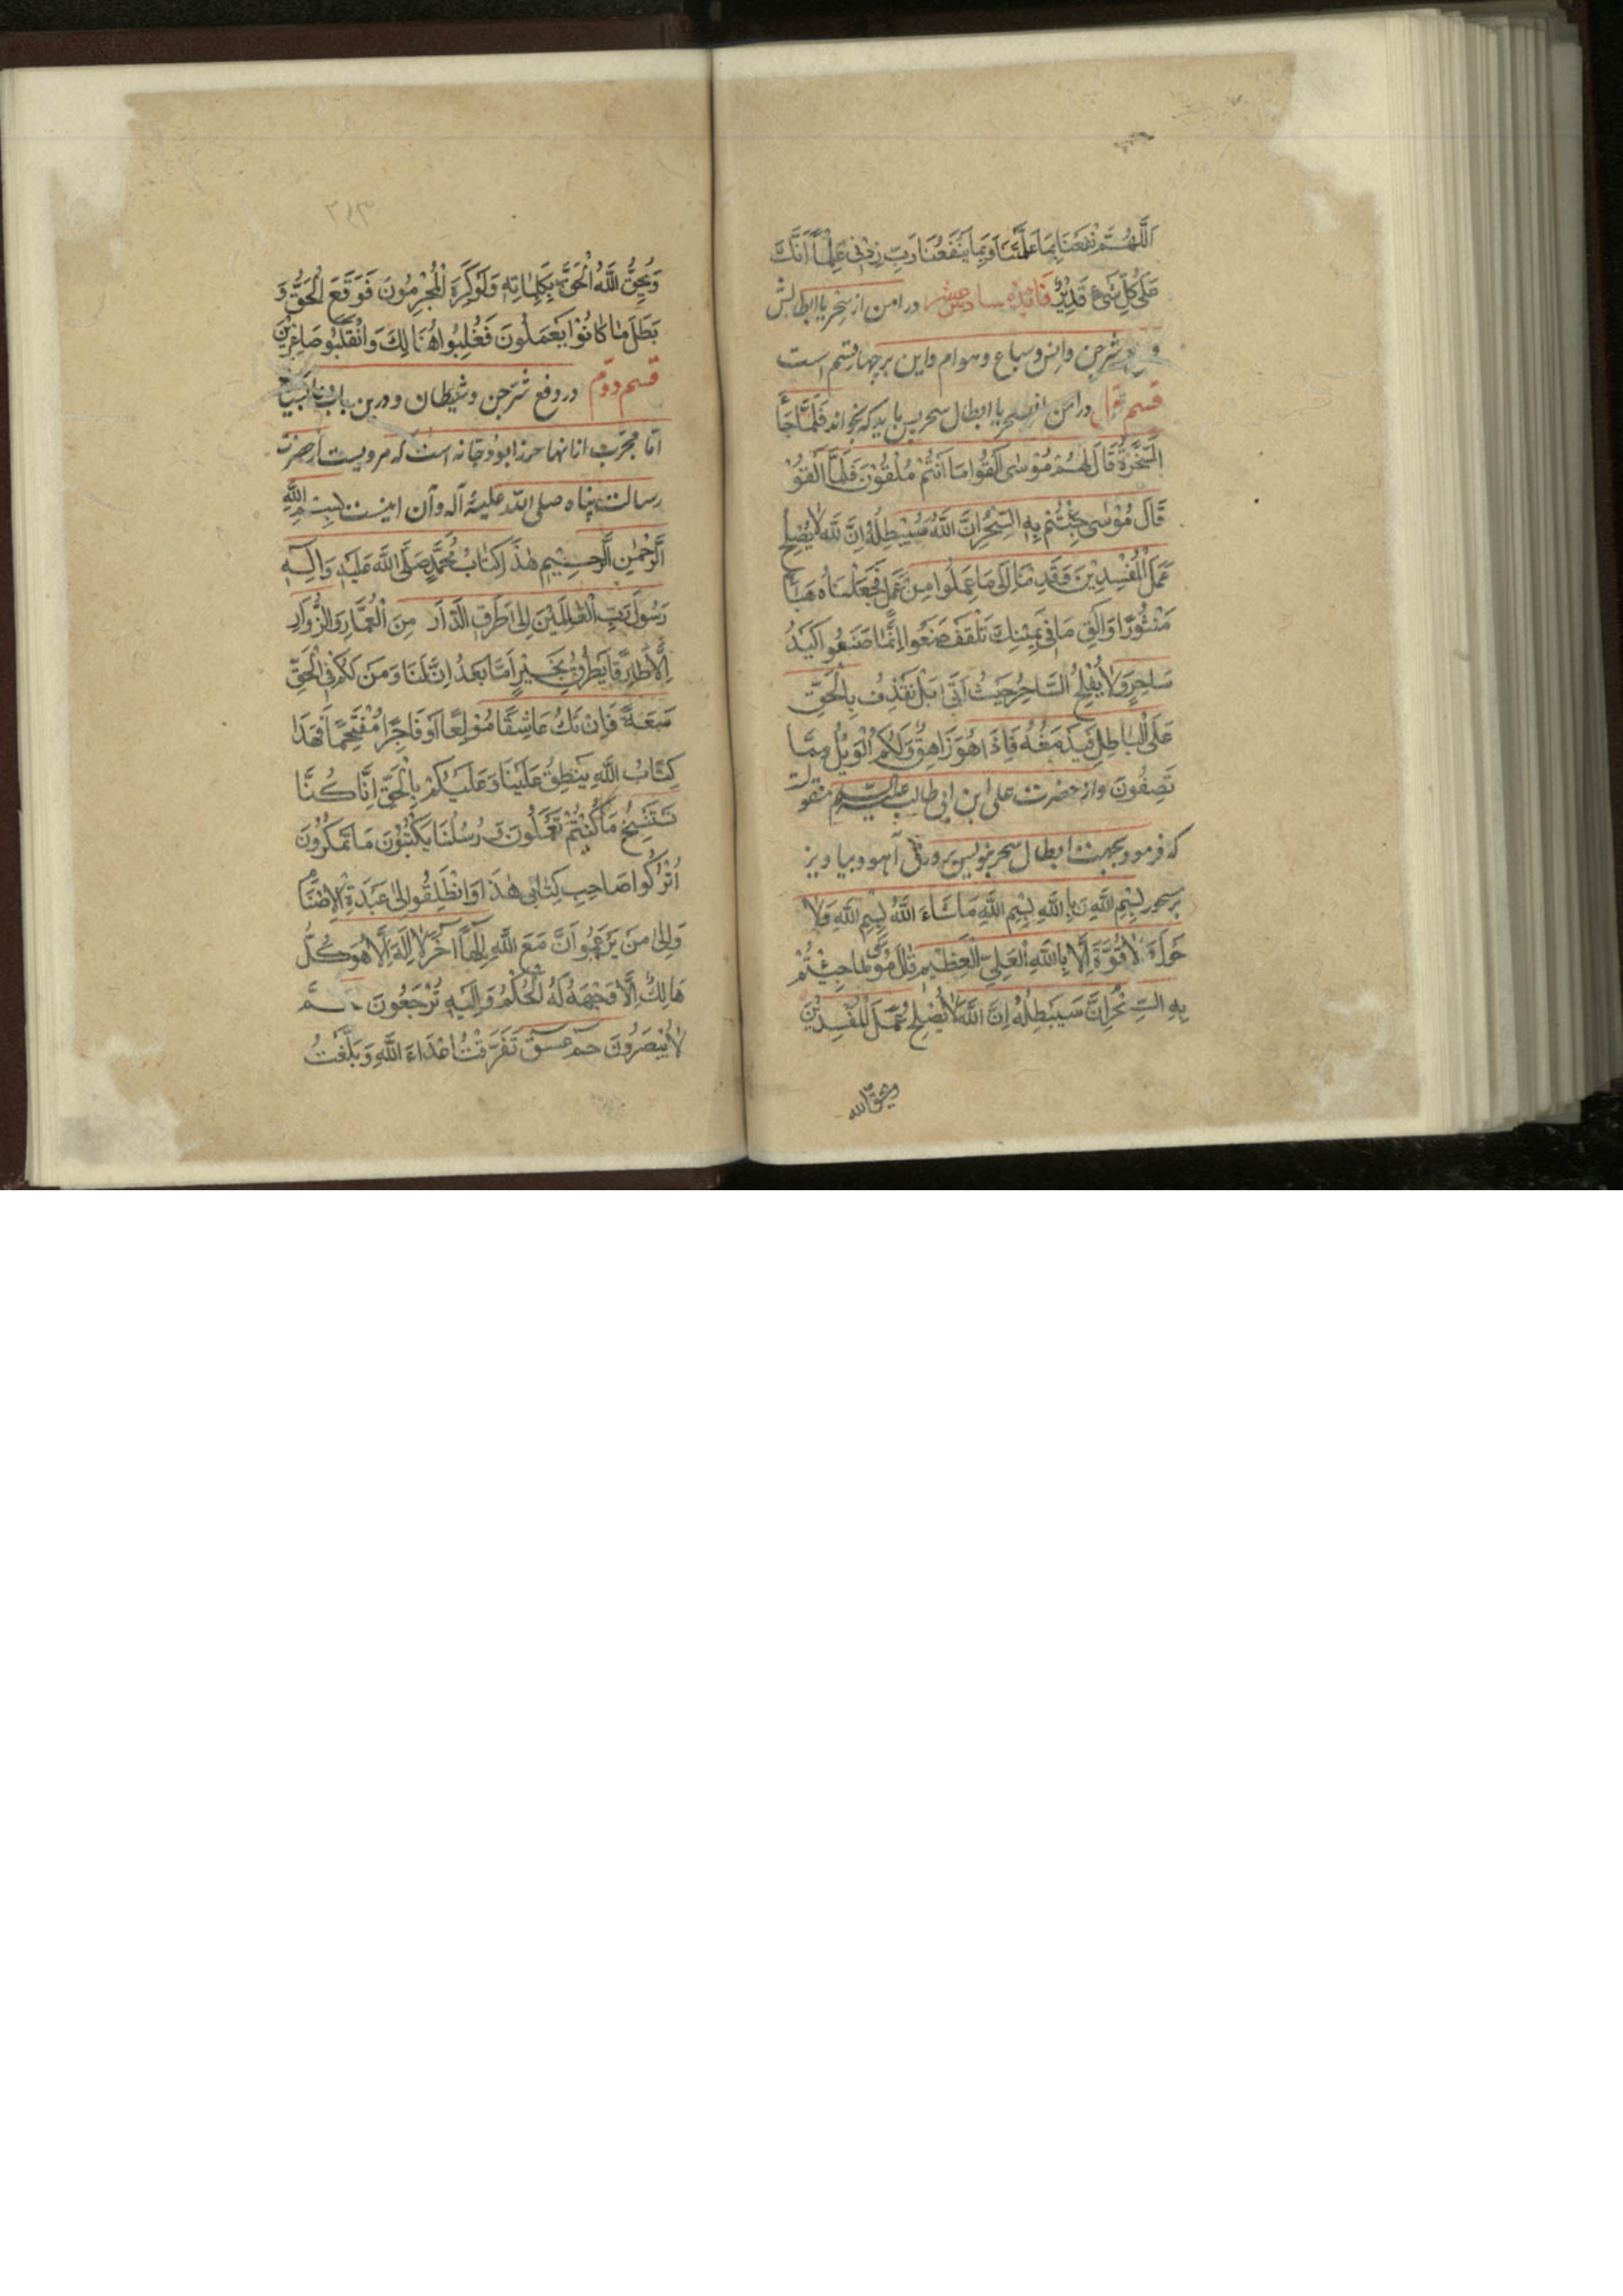 اَللّهُمَّ نْفَعْنَا بِمَا عَلَّمْتَنَا وَبِمَا يَنْفَعُنَا رَبِّ زِدْنِی عِلْمًا اَنَّكَ
عَلَی كُلِّ شَیْءٍ قَدِیْرٌ فَائدهٔ سادس عشر در امن از سِحر یا ابطالش
و شر جن وانس وسباع وهوام واین بر چهار قسم است
قسم اول در امن از سحر یا ابطال سحر پس باید که بخواند فَلَمَّا جَآءَ
السَّحَرَةُ قَالَ لَهُمْ مُوْسٰی اَلْقُوا مَا اَنْتُمْ مُلْقُوْنَ فَلَمَّا اَلْقَوْ
قَالَ مُوْسٰی جِئْتُمْ بِهِ السِّحْرُ اِنَّ اللّٰهَ سَیُبْطِلُهُ اِنَّ للّٰهَ لَا یُصْلِحُ
عَمَلَ الْمُفْسِدِیْنَ وَقَدِمْنَا اِلٰی مَا عَمِلُوا مِنْ عَمَلٍ فَجَعَلْنَاهُ هَبَاءً
مَنْثُوْرًا وَاَلْقِ مَا فِی یَمِیْنِكَ تَلْقَفْ صَنَعُوا اِنَّمَا صَنَعُوا كَیْدُ
سَاحِرٍ وَلَا یُفْلِحُ السَّاحِرُ حَیْثُ اَتٰی بَلْ نَقْذِفُ بِالْحَقِّ
عَلَی الْبَاطِلِ فَیَدْمَغُهُ فَاِذَا هُوَ زَاهِقٌ وَلَكُمُ الْوَیْلُ مِمَّا
تَصِفُونَ واز حضرت علی ابن ابی طالب علیه السلم منقولست
که فرمود بجهت ابطال سحر بنویس بر ورق آهو و بیاویز
بر سحور بِسْمِ اللّٰهِ بِاللّٰهِ بِسْمِ اللّٰهِ مَاشَاءَ اللّٰهُ بِسْمِ اللّٰهِ وَلَا
حَوْلَ لَا قُوَّةَ اِلَّا بِاللّٰهِ الْعَلِیِّ الْعَظِیْمِ قَالَ مُوسٰی مَا جِئْتُمْ
بِهِ السِّحْرُ اِنَّ سَیُبْطِلُهُ اِنَّ اللّٰهَ لَا یُصْلِحُ عَمَلَ الْمُفْسِدِیْنَ
ویحق الله
۲۱۳
وَیُحِقُّ اللّٰهُ الْحَقَّ بِكَلِمَاتِهِ وَلَوْ كَرِهَ الْمُجْرِمُونَ فَوَقَعَ الْحَقُّ وَ
بَطَلَ مَا كَانُوْا یَعْمَلُونَ فَغُلِبُوا هُنَالِكَ وَانْقَلَبُو صَاغِرِیْنَ
قسم دوم در دفع شر جن و شیطان و درین باب
اما مجرب از آنها حرز ابو دجانه است که مرویست از حضرت
رسالت پناه صلی الله علیه و آله و آن اینست بِسْمِ اللّٰهِ
الرَّحْمٰنِ الرَّحِیْمِ هٰذَ كِتَابُ مُحَمَّدٍ صَلَّی اللّٰه عَلَیْهِ وَاٰلِهِ
رَسُولِ رَبِّ الْعَالَمِیْنَ اِلٰی طَرَقِ الدَّارَ مِنَ الْعُمَّارِ وَالزُّوَارِ
اِلَّا طَارِقًا یَطْرُقُ بِخَیْرٍ اَمَّا بَعْدُ اِنَّ لَنَا وَمَنْ لَكُمْ فِی الْحَقِّ
سَعَةً فَاِنْ تَكُ عَاشِقًا مُوْلِعًا اَوْ فَاجِرًا مُقْتَحِمًا فَهٰذَا
كِتَابُ اللّٰهِ یَنْطِقُ عَلَیْنَا وَعَلَیْكُمْ بِالْحَقِّ اِنَّا كُنَّا
نَسْتَنْسِخُ مَا كُنْتُمْ تَعْمَلُونَ وَ رُسُلُنَا یَكْتُبُوْنَ مَا تَمْكُرُوْنَ
اُتْرُكُوا صَاحِبِ كِتَابِی هٰذَا وَانْطَلِقُو اِلٰی عَبَدَةِ الْاَصْنَامِ
وَاِلٰی مَنْ یَزْعَمُوا اَنَّ مَعَ اللّٰهِ اِلٰهًا آخَرَ لَا اِلٰهَ اِلَّا هُوَ كُلُّ
هَالِكٌ اِلَّا وَجْهَهُ لَهُ الْحُكْمُ وَاِلَیْهِ تُرْجَعُونَ حم
لَا یُبْصَرُونَ حم عسق تَفَرَّقَتْ اَعْدَاءَ اللّٰهِ وَبَلَغَتْ